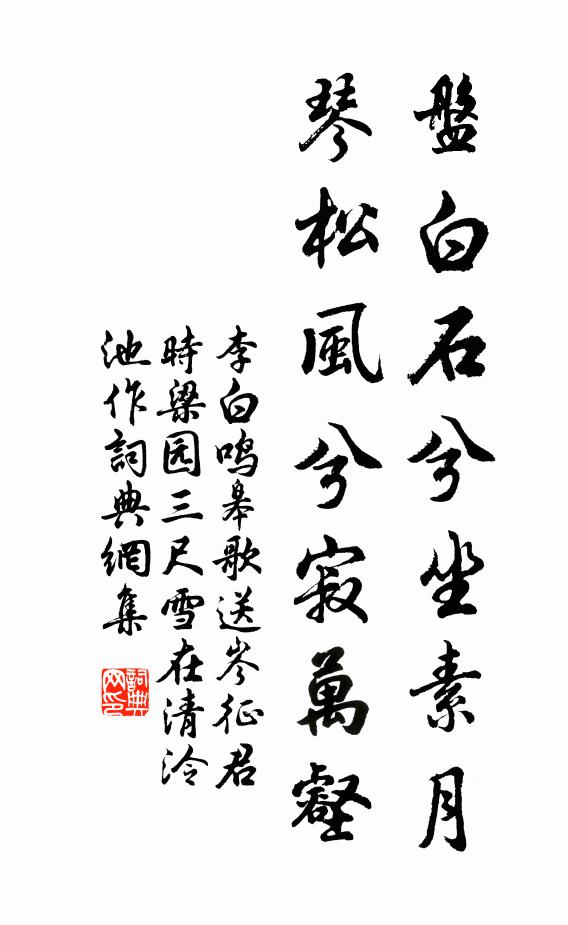 盤白石兮坐素月
琴松風兮寂萬壑
李白鸣皋歌送岑征君
時梁园三尺雪在清泠
池作詞典網集
詞典网印